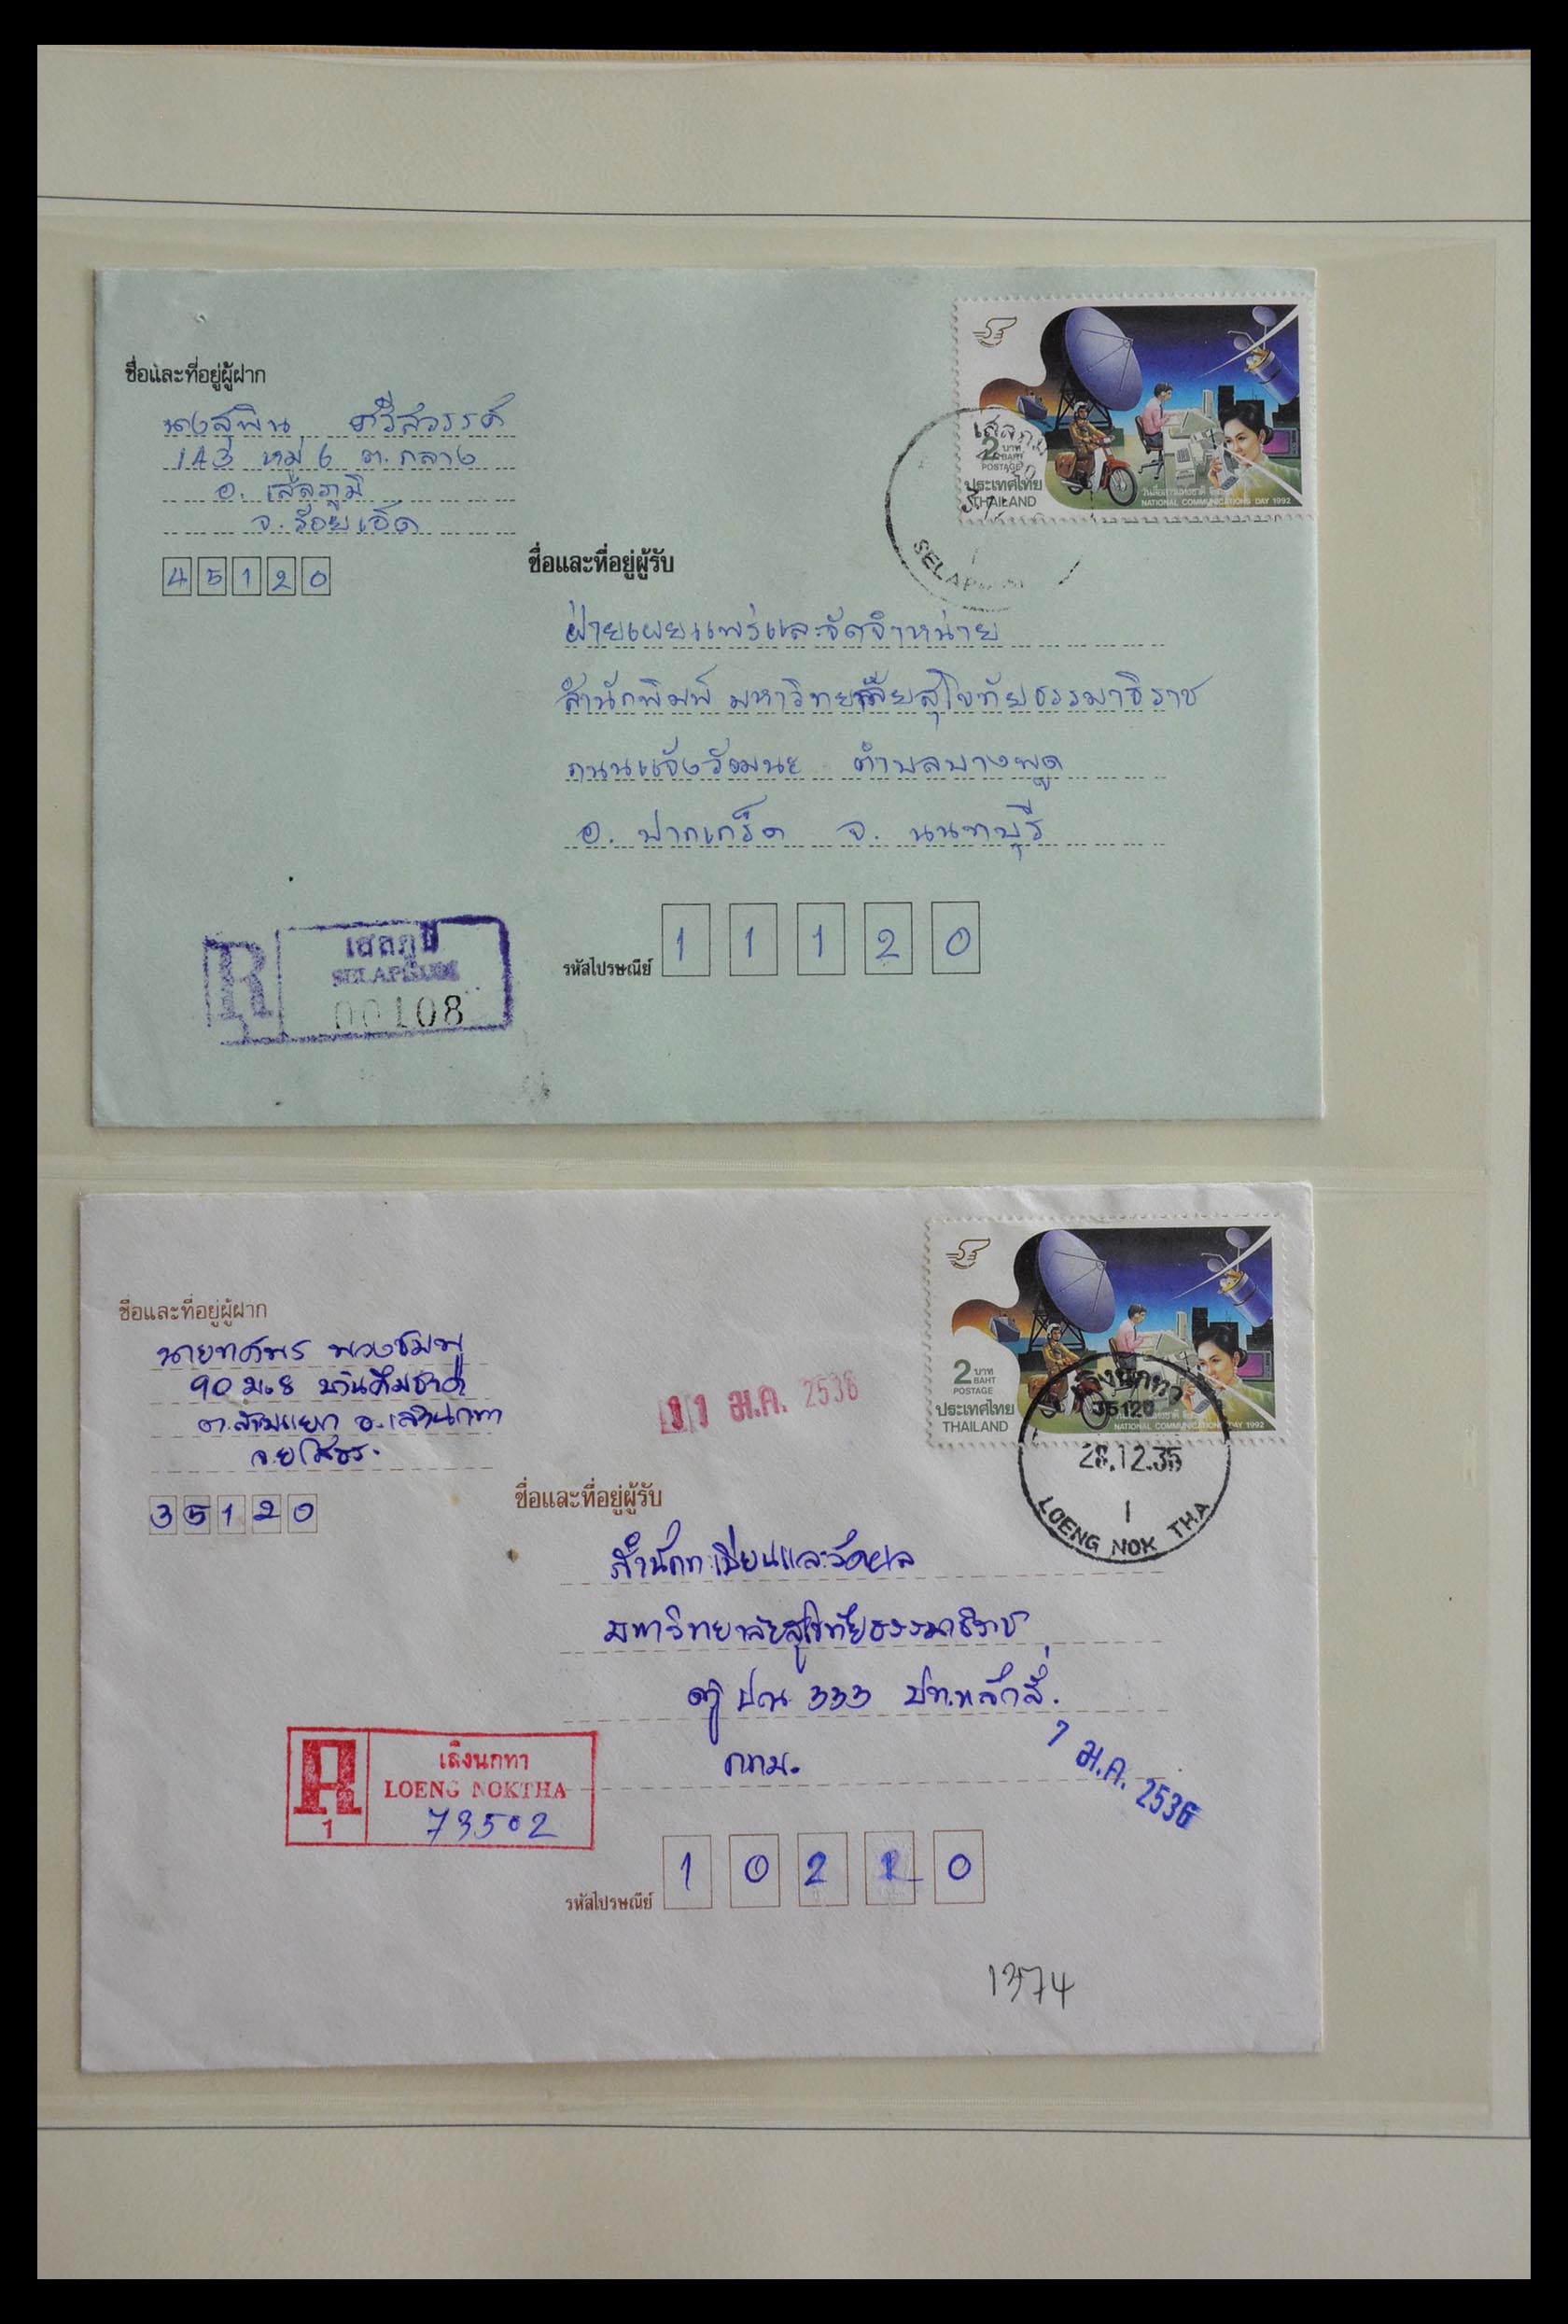 ชื่อและที่อยู่ผู้ฝาก
นางสุพิน ศรีสวรรค์
143 หมู่ 6 ต.กลาง
อ. เสลภูมิ
จ. ร้อยเอ็ด
45120
2 บาท
BAHT
POSTAGE
ประเทศไทย
THAILAND
วันสื่อสารแห่งชาติ
NATIONAL COMMUNICATIONS DAY 1992
เสลภูมิ
ชื่อและที่อยู่ผู้รับ
ฝ่ายเผยแพร่และจัดจำหน่าย
สำนักพิมพ์ มหาวิทยาลัยสุโขทัยธรรมาธิราช
ถนนแจ้งวัฒนะ ตำบลบางพูด
อ. ปากเกร็ด จ. นนทบุรี
รหัสไปรษณีย์ 11120
R
เสลภูมิ
SELAPHUM
00108
ชื่อและที่อยู่ผู้ฝาก
90 ม.8
อ.เลิงนกทา
จ.ยโสธร.
35120
11 ม.ค. 2536
2 บาท
BAHT
POSTAGE
ประเทศไทย
THAILAND
NATIONAL COMMUNICATIONS DAY 1992
เลิงนกทา
35120
28.12.35
1
LOENG NOK THA
ชื่อและที่อยู่ผู้รับ
สำนักทะเบียนและวัดผล
มหาวิทยาลัยสุโขทัยธรรมาธิราช
ตู้ ปณ 333 ปท.หลักสี่.
กทม.
7 ม.ค. 2536
R
1
เลิงนกทา
LOENG NOKTHA
73502
รหัสไปรษณีย์ 10210
1374